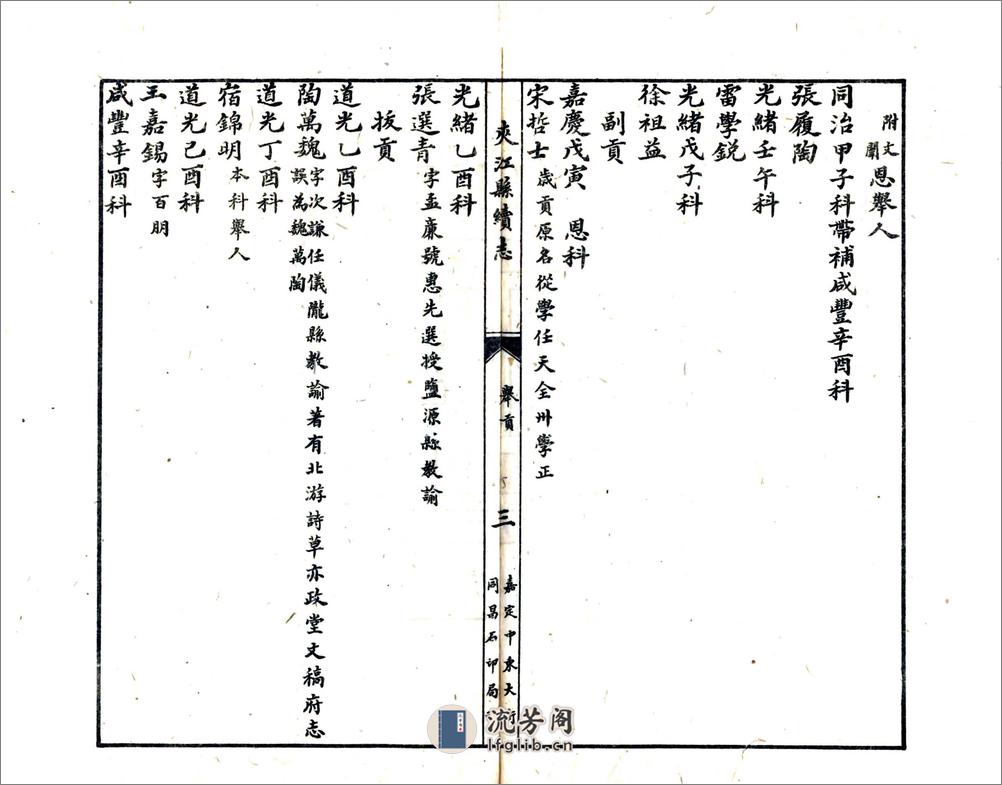 附文闈恩舉人
同治甲子科帶補咸豐辛酉科
張履陶
光緒壬午科
雷學銳
光緒戊子科
徐祖益
副貢
嘉慶戊寅 恩科
宋哲士 歲貢原名從學任天全州學正
夾江縣續志
舉貢
三
嘉定中東大街
同昌石印局
光緒乙酉科
張選青 字孟廉號惠先選授鹽源縣教諭
拔貢
道光乙酉科
陶萬魏 字次謙任儀隴縣教諭著有北游詩草亦政堂文稿府志
誤為魏萬陶
道光丁酉科
宿錦明 本科舉人
道光己酉科
王嘉錫 字百朋
咸豐辛酉科
流芳阁
lfglib.cn